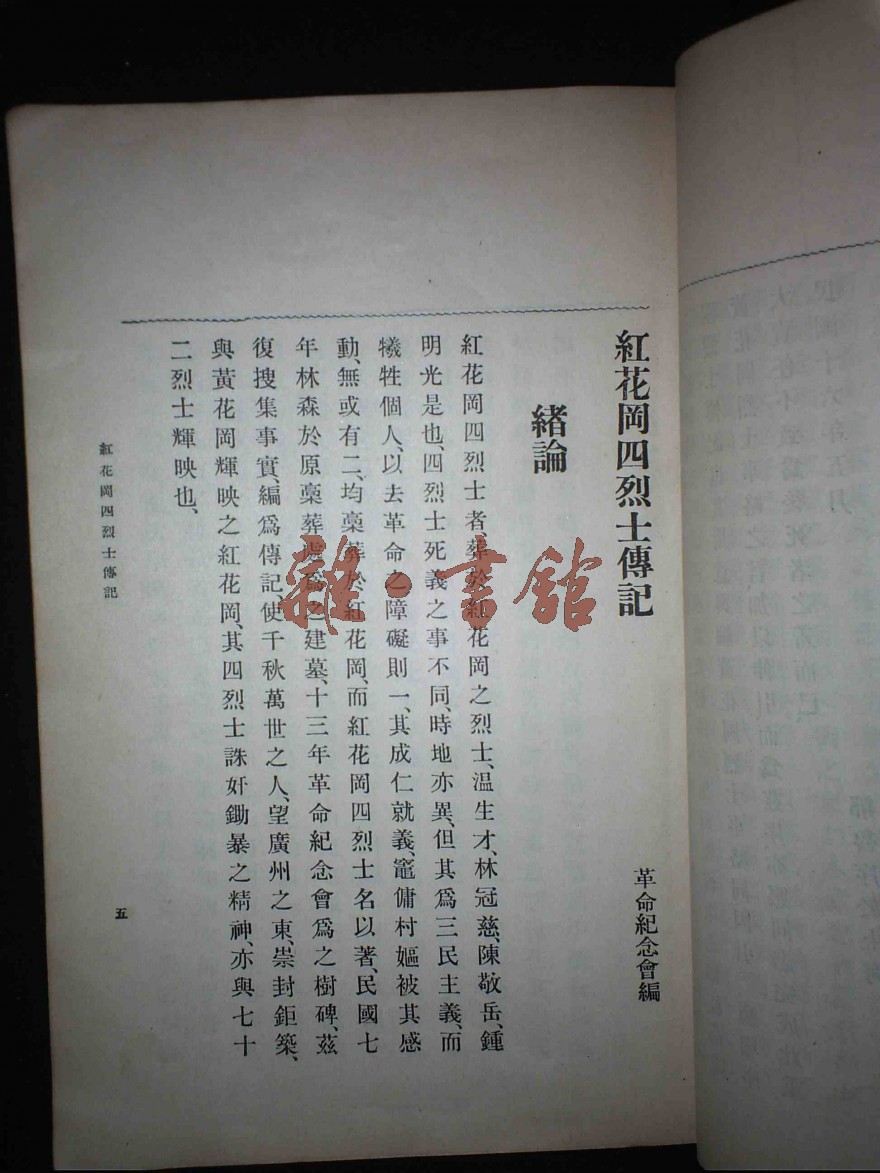 紅花岡四烈士傳記
革命紀念會編
緒論
紅花岡四烈士者、葬於紅花岡之烈士、温生才、林冠慈、陳敬岳、鍾
明光是也、四烈士死義之事不同、時地亦異、但其爲三民主義、而
犧牲個人、以去革命之障礙則一、其成仁就義、竈傭村嫗被其感
動、無或有二、均槀葬於紅花岡、而紅花岡四烈士名以著、民國七
年林森於原槀葬處爲之建墓、十三年革命紀念會爲之樹碑、茲
復搜集事實、編爲傳記、使千秋萬世之人、望廣州之東、崇封鉅築、
與黃花岡輝映之紅花岡、其四烈士誅奸鋤暴之精神、亦與七十
二烈士輝映也、
紅花岡四烈士傳記
五
雜·書館